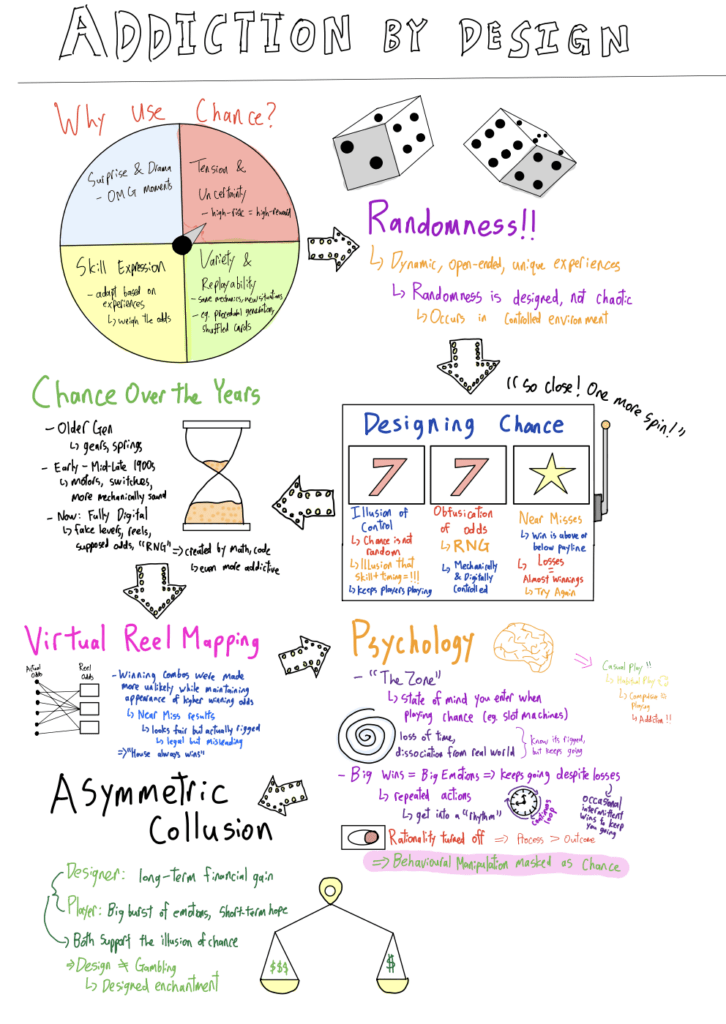 ADDICTION BY DESIGN
Why use Chance?
Surprise & Drama
- OMG moments
Tension &
Uncertainty
- high-risk = high-reward
Skill Expression
- adapt based on
experiences
↳ weigh the odds
Variety &
Replayability
- same mechanics, new situations
- eg. procedural generation,
shuffled cards
Randomness!!
↳ Dynamic, open-ended, unique experiences
↳ Randomness is designed, not chaotic
↳ Occurs in controlled environment
"So close! One more spin!"
Designing Chance
7 7
Illusion of
Control
↳ Chance is not
random
↳ Illusion that
skill+timing=!!!
↳ keeps players playing
Obfusication
of odds
↳ RNG
↳ Mechanically
& Digitally
controlled
Near Misses
↳ Win is above or
below payline
↳ Losses
=
Almost winnings
↳ Try Again
Chance Over the Years
- Older Gen
↳ gears, springs
- Early - Mid-Late 1900s
↳ motors, switches,
more mechanically sound
- Now: Fully Digital
↳ fake levers, reels,
supposed odds, "RNG" => created by math, code
↳ even more addictive
Virtual Reel Mapping
Actual
odds
Reel
odds
- Winning combos were made
more unlikely while maintaining
appearance of higher winning odds
↳ Near Miss results
↳ looks fair but actually rigged
↳ legal but misleading
=> "House always wins"
Psychology
- "The Zone"
↳ state of mind you enter when
playing chance (eg. slot machines)
loss of time,
dissociation from real world
Know its rigged,
but keeps going
Casual Play !!
↳ Habitual Play
↳ Compulsive
Playing
↳ Addictive !!
- Big Wins = Big Emotions => keeps going despite losses
↳ repeated actions
↳ get into a "rhythm"
continuous
loop
occasional
intermittent
wins to keep
you going
Rationality turned off => Process > Outcome
=> Behavioural Manipulation masked as Chance
Asymmetric
Collusion
Designer: long-term financial gain
Player: Big burst of emotions, short-term hope
Both support the illusion of chance
=> Design ≠ Gambling
↳ Designed enchantment
$$$
$